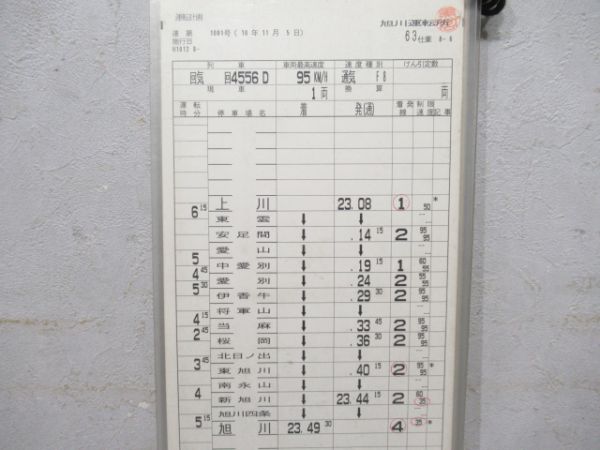 運転計画
達第 1001号(10年11月 5日)
施行日
H1012 8-
旭川運転所
63仕業 8-6
列車 車両最高速度 速度種別 けん引定数
回気 回4556D 95KM/H 通気 FB
現車 1両 換算 両
運転時分 停車場名 着 発(通) 着線 発 制限速度 記事
上川 23.08 1 50 *
6 15
東雲 ↓ ↓
安足間 ↓ .14 15 2 95 95
愛山 ↓ ↓
5
中愛別 ↓ .19 15 1 60 55
4 45
愛別 ↓ .24 2 95 95
5 30
伊香牛 ↓ .29 30 2 95 95
将軍山 ↓ ↓
4 15
当麻 ↓ .33 45 2 95 95
2 45
桜岡 ↓ .36 30 2 95 95
北日ノ出 ↓ ↓
3 45
東旭川 ↓ .40 15 2 95 95 *
南永山 ↓ ↓
4
新旭川 ↓ 23.44 15 2 60 35
旭川四条 ↓ ↓
5 15
旭川 23.49 30 4 35 *